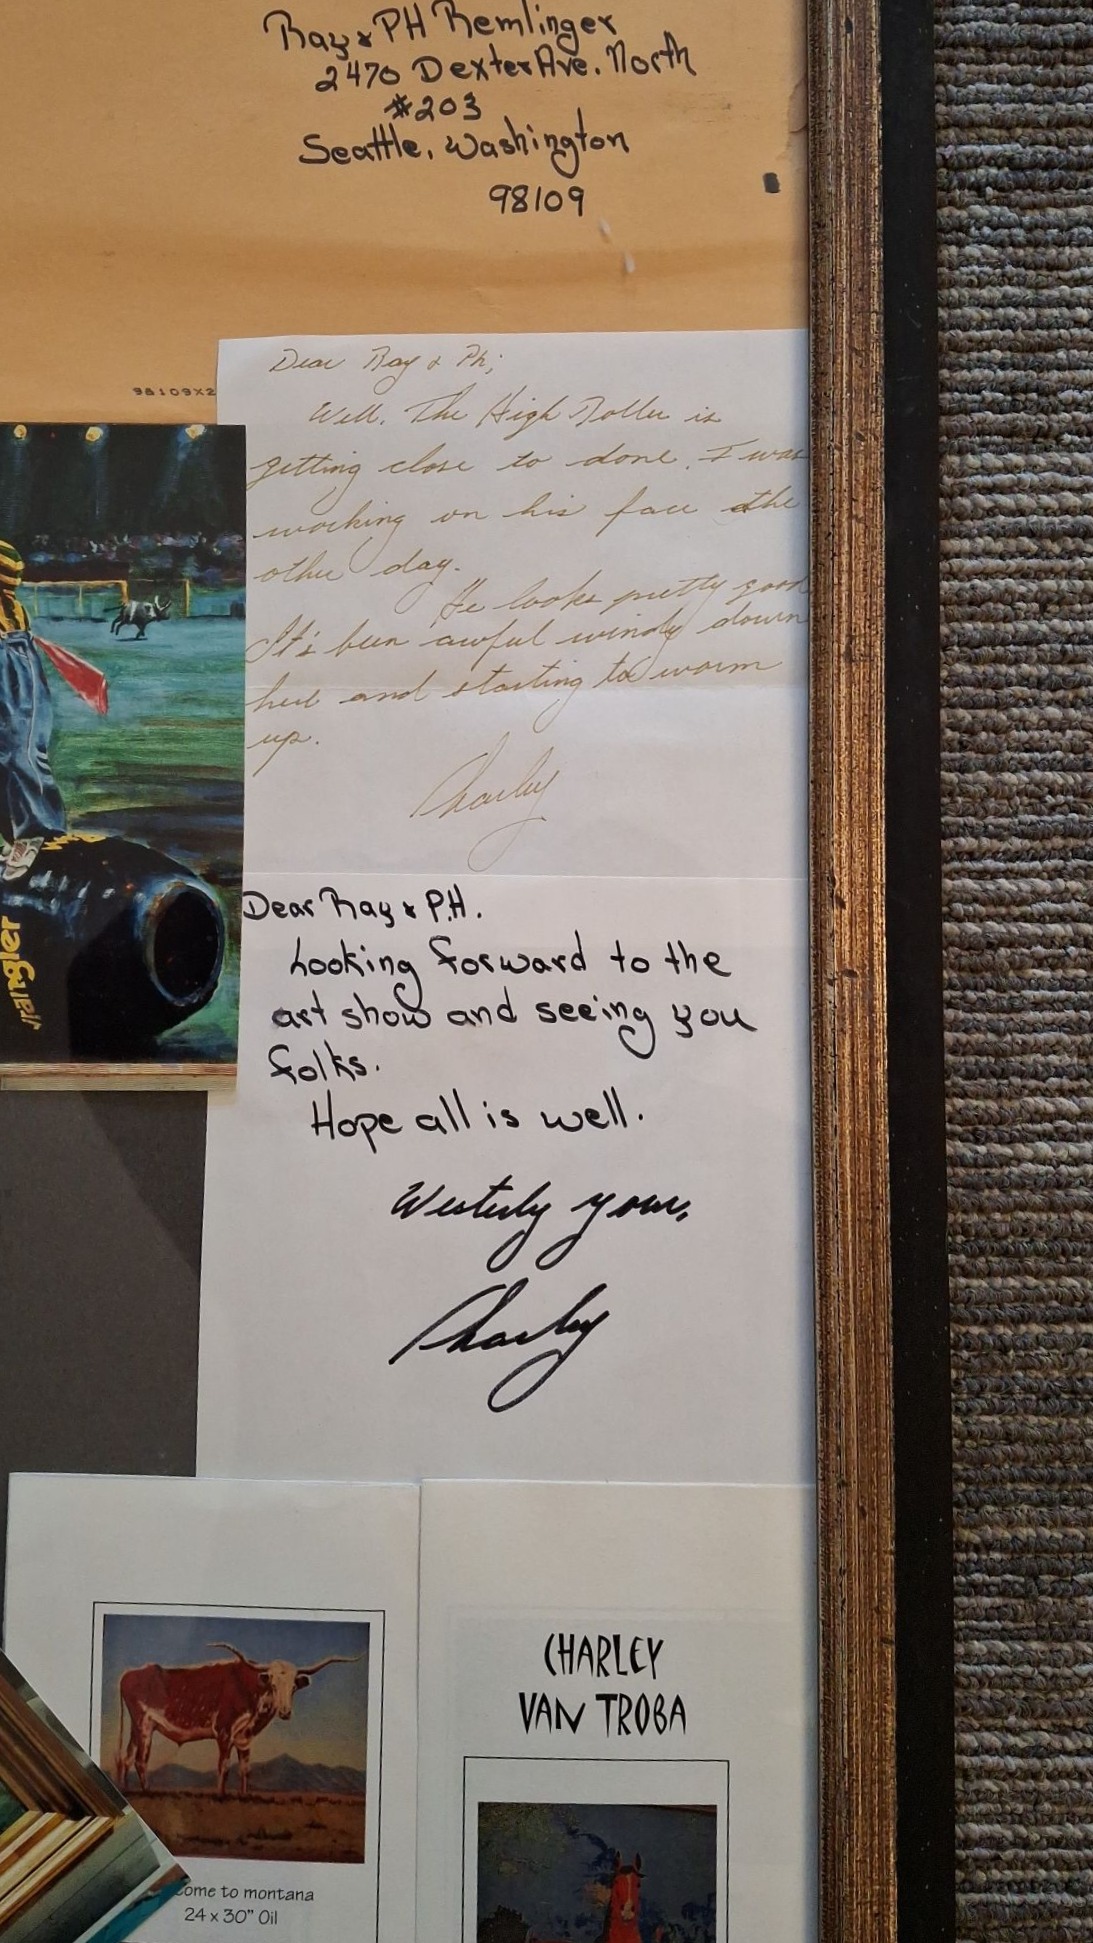 Ray & PH Remlinger
2470 Dexter Ave. North
#203
Seattle, Washington
98109
98109X2
Dear Ray & Ph;
Well. The High Roller is
getting close to done. I was
working on his face the
other day.
He looks pretty good
It's been awful windy down
here and starting to worm
up.
Charley
Dear Ray & P.H.
Looking forward to the
art show and seeing you
folks.
Hope all is well.
Westerly yours,
Charley
Wrangler
CHARLEY
VAN TROBA
come to montana
24 x 30" Oil